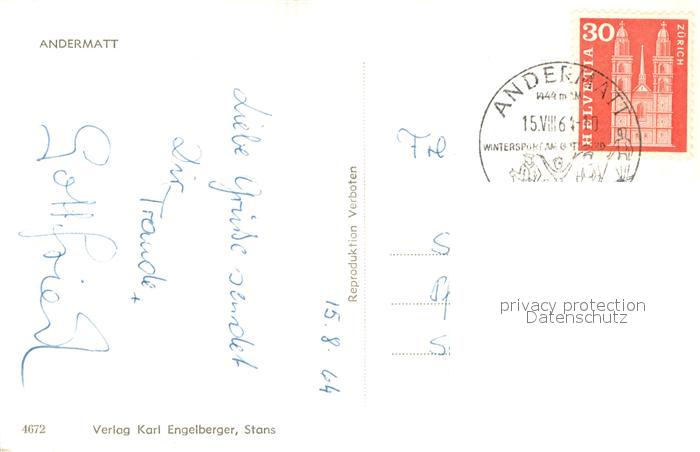 ANDERMATT
Liebe Grüße sendet
Dir
Traude +
Gottfried
15.8.64
Reproduktion Verboten
4672
Verlag Karl Engelberger, Stans
30
HELVETIA
ZÜRICH
ANDERMATT
1444 m ü.M.
15.VIII.64
WINTERSPORT AM GOTTHARD
privacy protection
Datenschutz